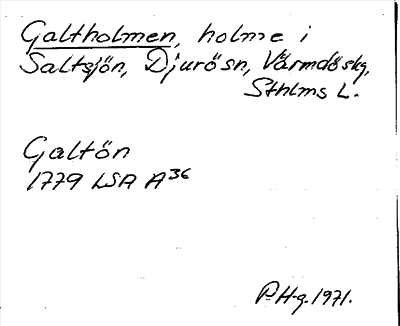 Galtholmen, holme i
Saltsjön, Djurösn, Värmdöskg,
Sthlms L.
Galtön
1779 LSA A36
P.H-g. 1971.